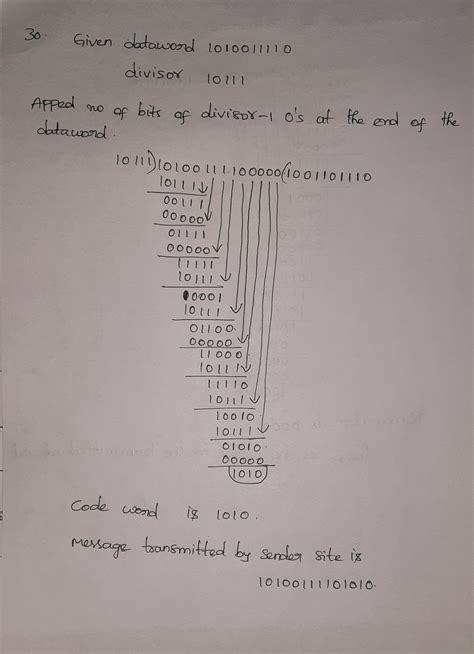 30. Given dataword 1010011110
divisor 10111
Apped no of bits of divisor-1 0's at the end of the
dataword.
10111)10100111100000(1001101110
10111
00111
00000
01111
00000
11111
10111
10001
10111
01100
00000
11000
10111
11110
10111
10010
10111
01010
00000
1010
Code word is 1010.
Message transmitted by sender site is
10100111101010.